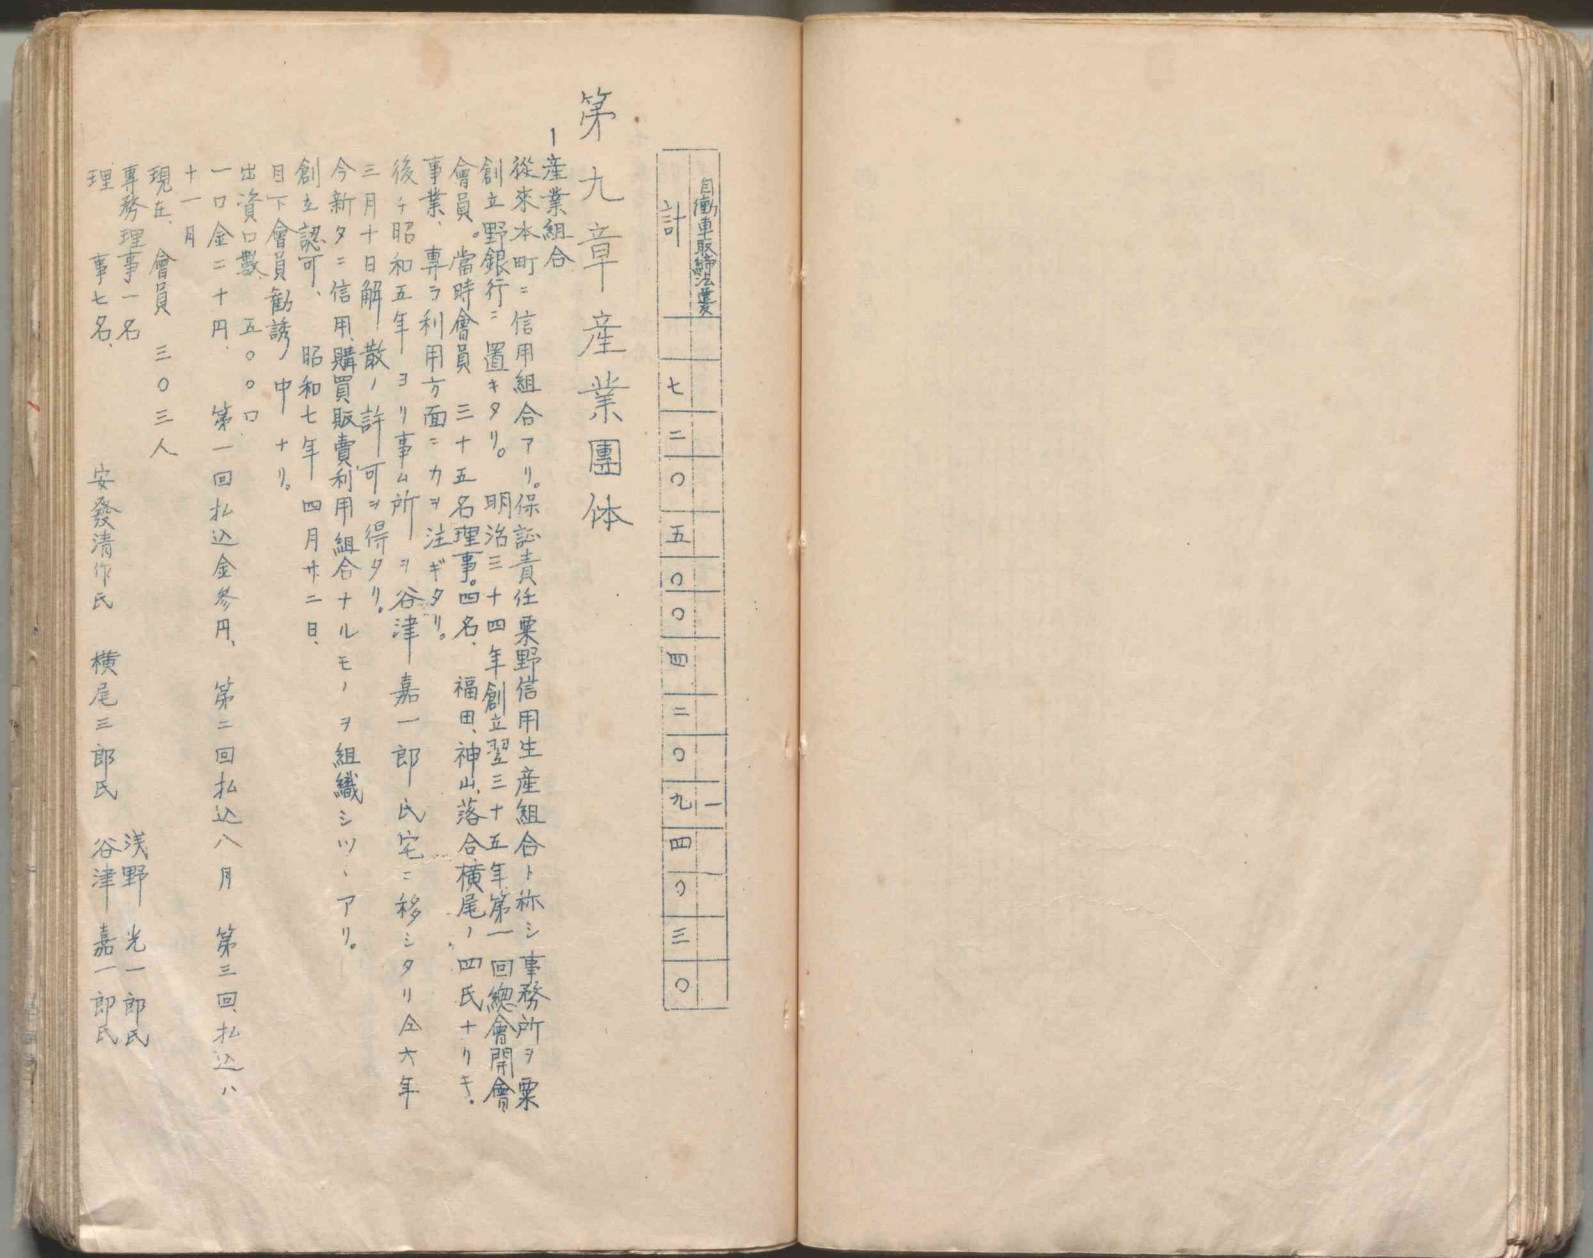 自働車取締法違反 一
計 七 二〇 五〇〇 四 二〇 九 四〇 三〇
第九章 産業團体
1 産業組合
從來本町ニ信用組合アリ。保証責任粟野信用生産組合ト称シ事務所ヲ粟
創立野銀行ニ置キタリ。 明治三十四年創立翌三十五年第一回總會開會
會員。當時會員 三十五名理事。四名、福田、神山、落合、横尾ノ四氏ナリキ.
事業、專ラ利用方面ニカヲ注ギタリ。
後チ昭和五年ヨリ事ム所ヲ谷津嘉一郎氏宅ニ移シタリ仝六年
三月十日解散ノ許可ヲ得タリ。
今新タニ信用、購買販賣利用組合ナルモノヲ組織シツヽアリ。
創立認可、 昭和七年四月廿二日、
目下會員勧誘中ナリ。
出資口數、 五〇〇口
一口金二十円、 第一回払込金参円、 第二回払込八月 第三回払込ハ
十一月
現在、會員 三〇三人
專務理事一名 浅野光一郎氏
理 事七名、 安發清作氏 横尾三郎氏 谷津嘉一郎氏